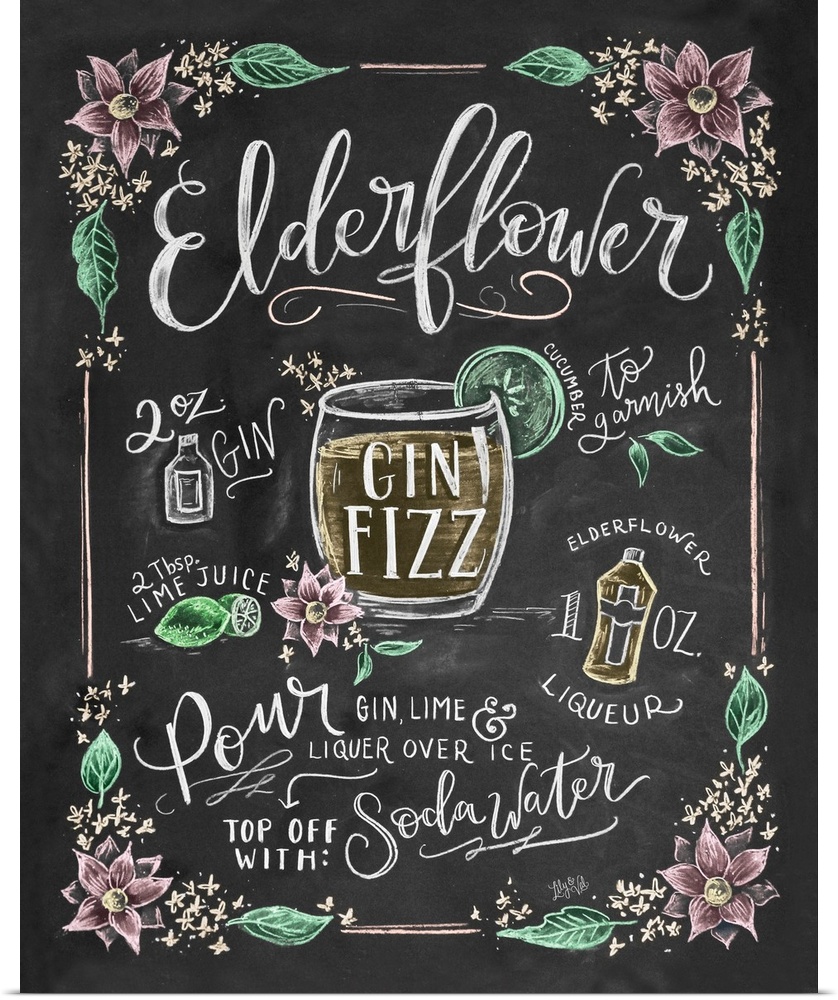 Elderflower
GIN
FIZZ
2 oz.
GIN
CUCUMBER
to
garnish
2 Tbsp.
LIME JUICE
ELDERFLOWER
1 OZ.
LIQUEUR
Pour GIN, LIME &
LIQUER OVER ICE
TOP OFF
WITH:
Soda Water
Lily & Val